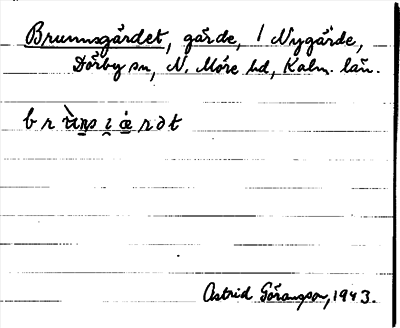 Brunnsgärdet, gärde, / Nygärde,
Dörby sn, N. Möre hd, Kalm. län.
Astrid Göransson, 1943.